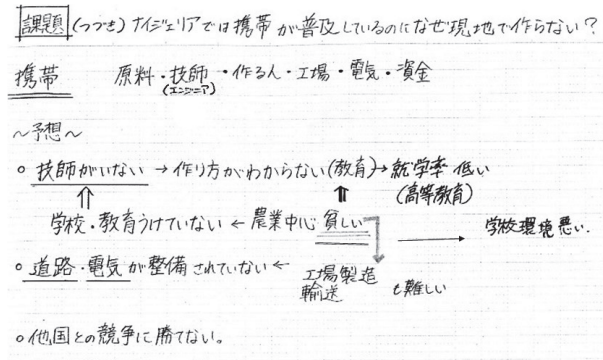 課題 (つづき) ナイジェリアでは携帯が普及しているのになぜ現地で作らない?
携帯 原料・技師・作る人・工場・電気・資金
(エンジニア)
~予想~
○ 技師がいない → 作り方がわからない(教育) → 就学率 低い
(高等教育)
⇑ ⇑
学校・教育うけていない ← 農業中心 貧しい → 学校環境悪い.
○ 道路・電気が整備されていない ← 工場製造
輸送 も難しい
○ 他国との競争に勝てない。